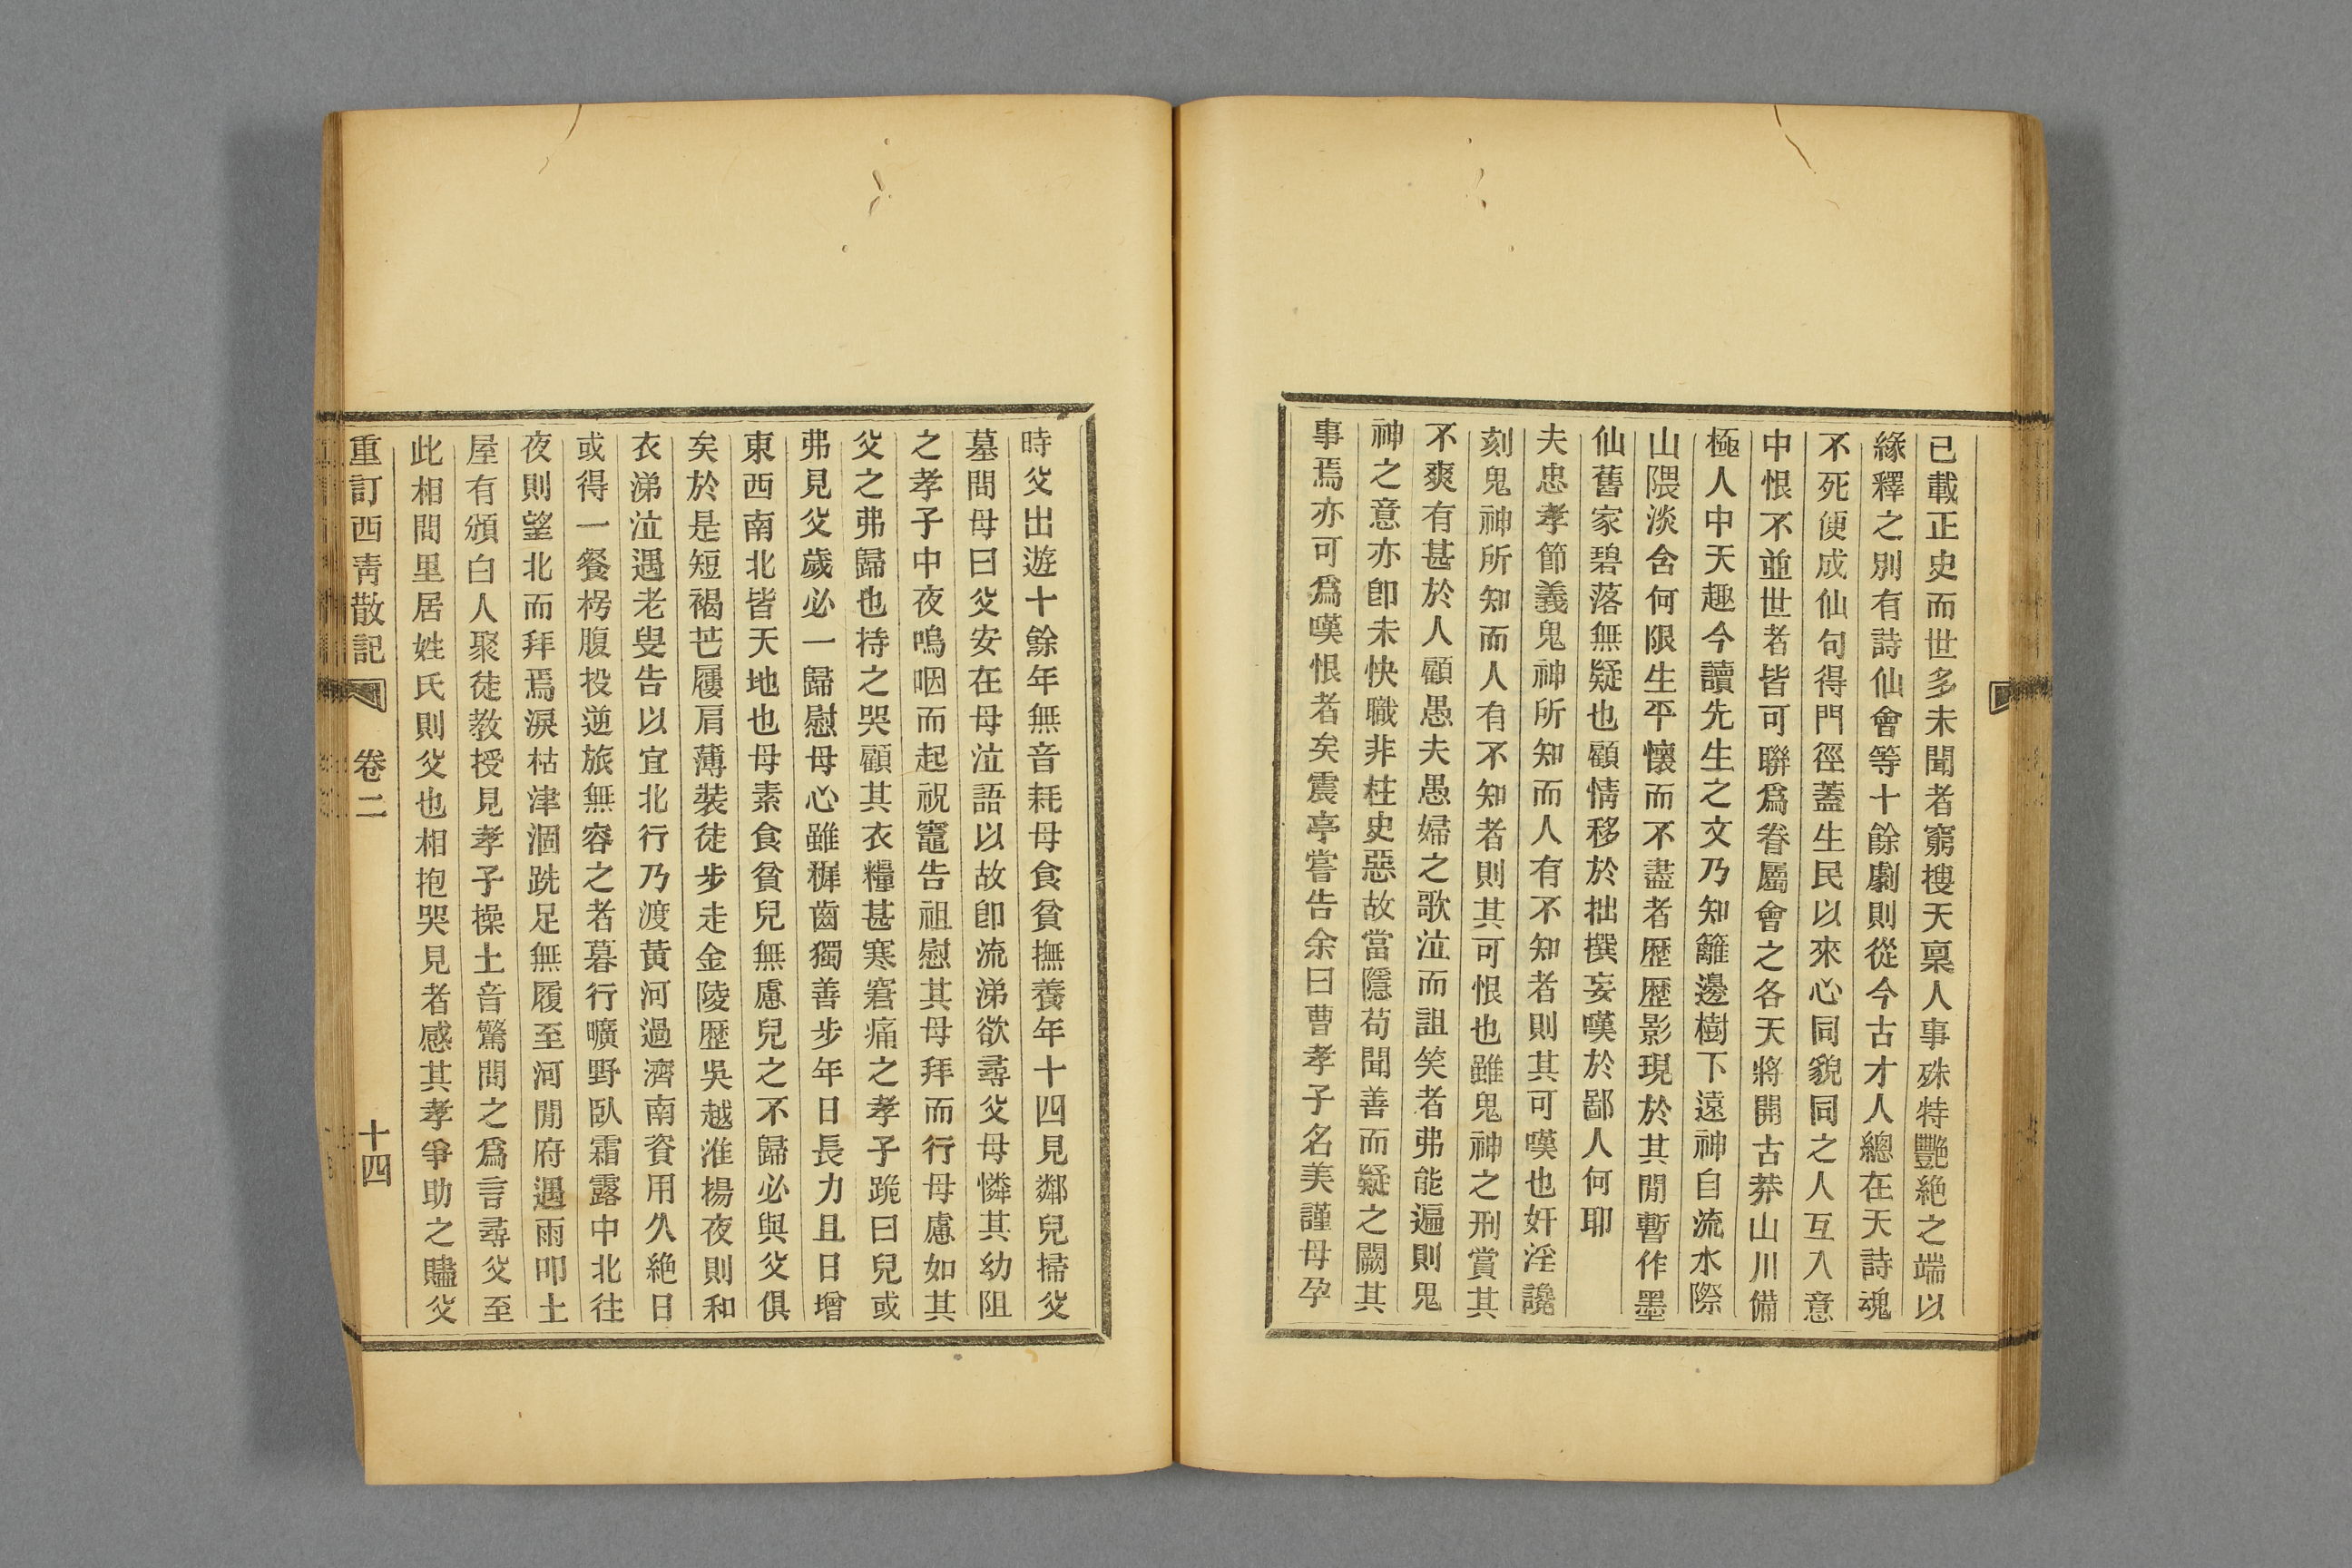 已載正史而世多未聞者窮搜天稟人事殊特艷絶之端以
緣釋之別有詩仙會等十餘劇則從今古才人總在天詩魂
不死便成仙句得門徑蓋生民以來心同貌同之人互入意
中恨不並世者皆可聯爲眷屬會之各天將開古莽山川備
極人中天趣今讀先生之文乃知籬邊樹下遠神自流水際
山隈淡含何限生平懷而不盡者歴歴影現於其閒暫作墨
仙舊家碧落無疑也顧情移於拙撰妄嘆於鄙人何耶
夫忠孝節義鬼神所知而人有不知者則其可嘆也奸淫讒
刻鬼神所知而人有不知者則其可恨也雖鬼神之刑賞其
不爽有甚於人顧愚夫愚婦之歌泣而詛笑者弗能遍則鬼
神之意亦卽未快職非柱史惡故當隱苟聞善而疑之闕其
事焉亦可爲嘆恨者矣震亭嘗告余曰曹孝子名美謹母孕
時父出遊十餘年無音耗母食貧撫養年十四見鄰兒掃父
墓問母曰父安在母泣語以故卽流涕欲尋父母憐其幼阻
之孝子中夜嗚咽而起祝竈告祖慰其母拜而行母慮如其
父之弗歸也持之哭顧其衣糧甚寒窘痛之孝子跪曰兒或
弗見父歲必一歸慰母心雖穉齒獨善步年日長力且日增
東西南北皆天地也母素食貧兒無慮兒之不歸必與父俱
矣於是短褐芒屨肩薄裝徒步走金陵歴吳越淮楊夜則和
衣涕泣遇老叟告以宜北行乃渡黃河過濟南資用久絶日
或得一餐枵腹投逆旅無容之者暮行曠野臥霜露中北往
夜則望北而拜焉淚枯津涸跣足無履至河閒府遇雨叩土
屋有頒白人聚徒教授見孝子操土音驚問之爲言尋父至
此相問里居姓氏則父也相抱哭見者感其孝爭助之贐父
重訂西靑散記 卷二 十四